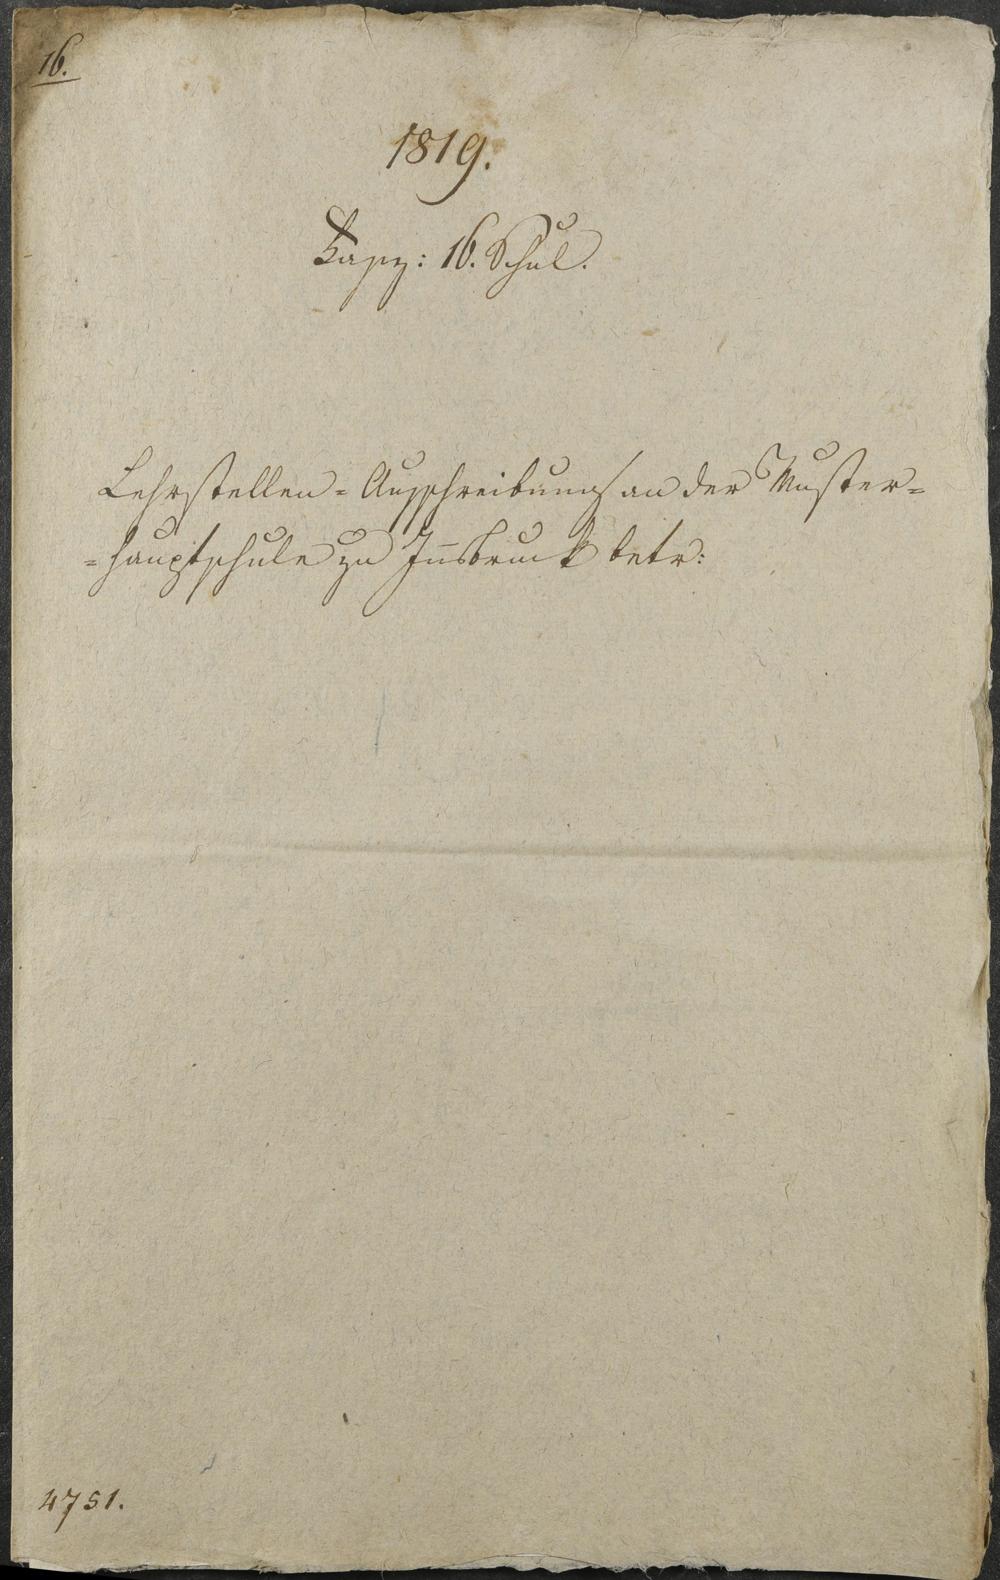 16.
1819.
Fasz: 16. Schul.
Lehrstellen=Ausschreibung an der Muster=
=hauptschule zu Insbruck betr:
4751.